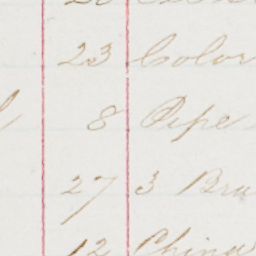 23 Color
8 Pipe
27 3 Bra
12 China